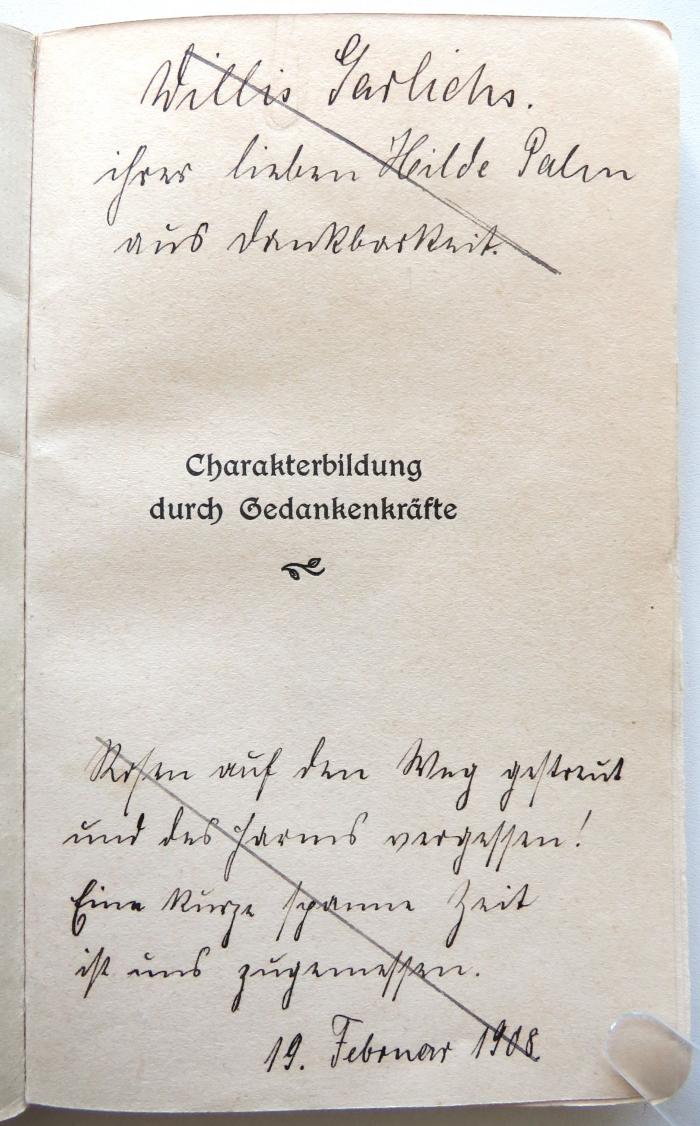 Willis Garlichs.
ihrer lieben Hilde Palm
aus Dankbarkeit.
Charakterbildung
durch Gedankenkräfte
Rosen auf den Weg gestreut
und des Harms vergessen!
Eine kurze Spanne Zeit
ist uns zugemessen.
19. Februar 1908.